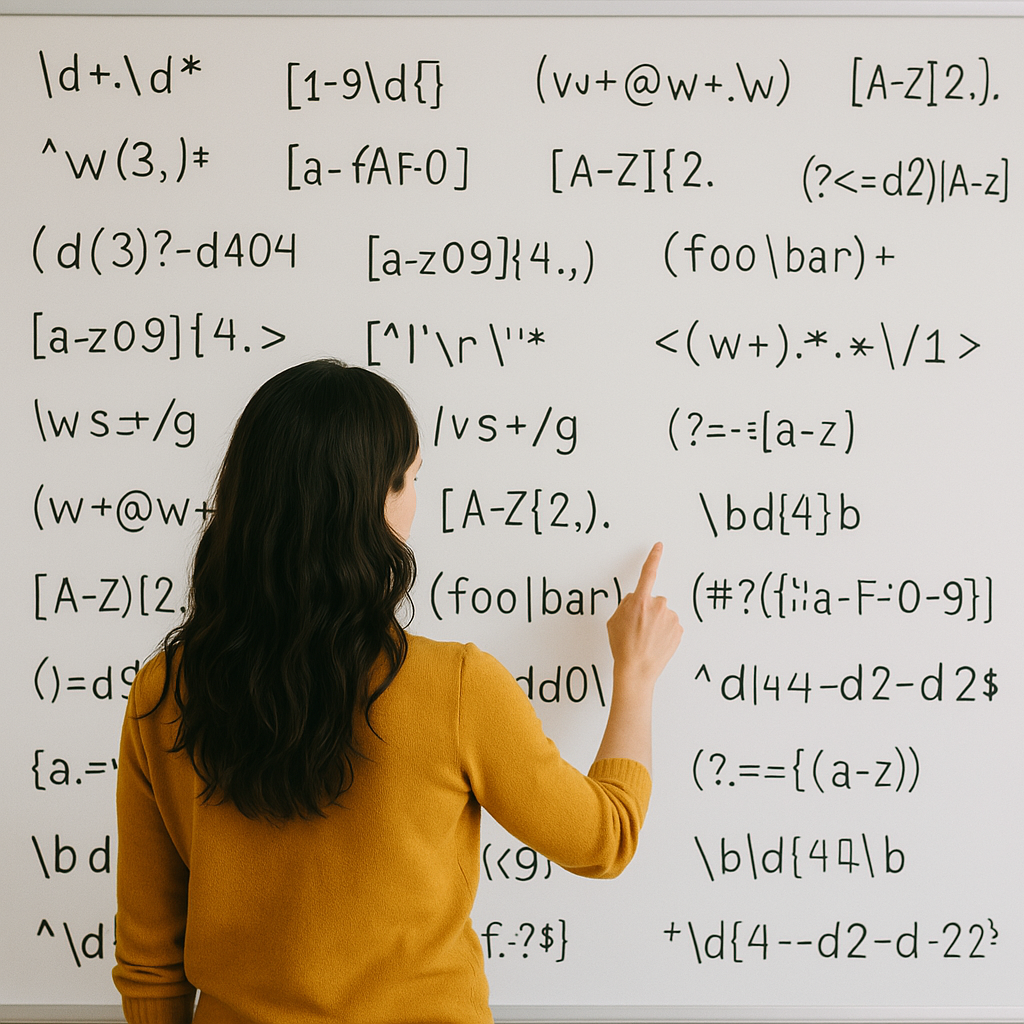 \d+.\d* [1-9\d{}} (vu+@w+.\w) [A-Z]2,).
^w(3,)‡ [a-fAF-0] [A-Z]{2. (?<=d2)|A-z]
(d(3)?-d404 [a-z09]{4.,) (foo\bar)+
[a-z09]{4.> [^|'\r\"* <(w+).*.*\/1>
\ws=+/g /vs+/g (?=-=[a-z)
(w+@w+ [A-Z{2,). \bd{4}b
[A-Z)[2, (foo|bar) (#?({¦¦a-F-0-9}]
()=d9 dd0\ ^d|44-d2-d2$
{a.= (?.=={(a-z))
\bd (<9) \b|d{4 \b
^\d f.-?$} +\d{4--d2-d-22}